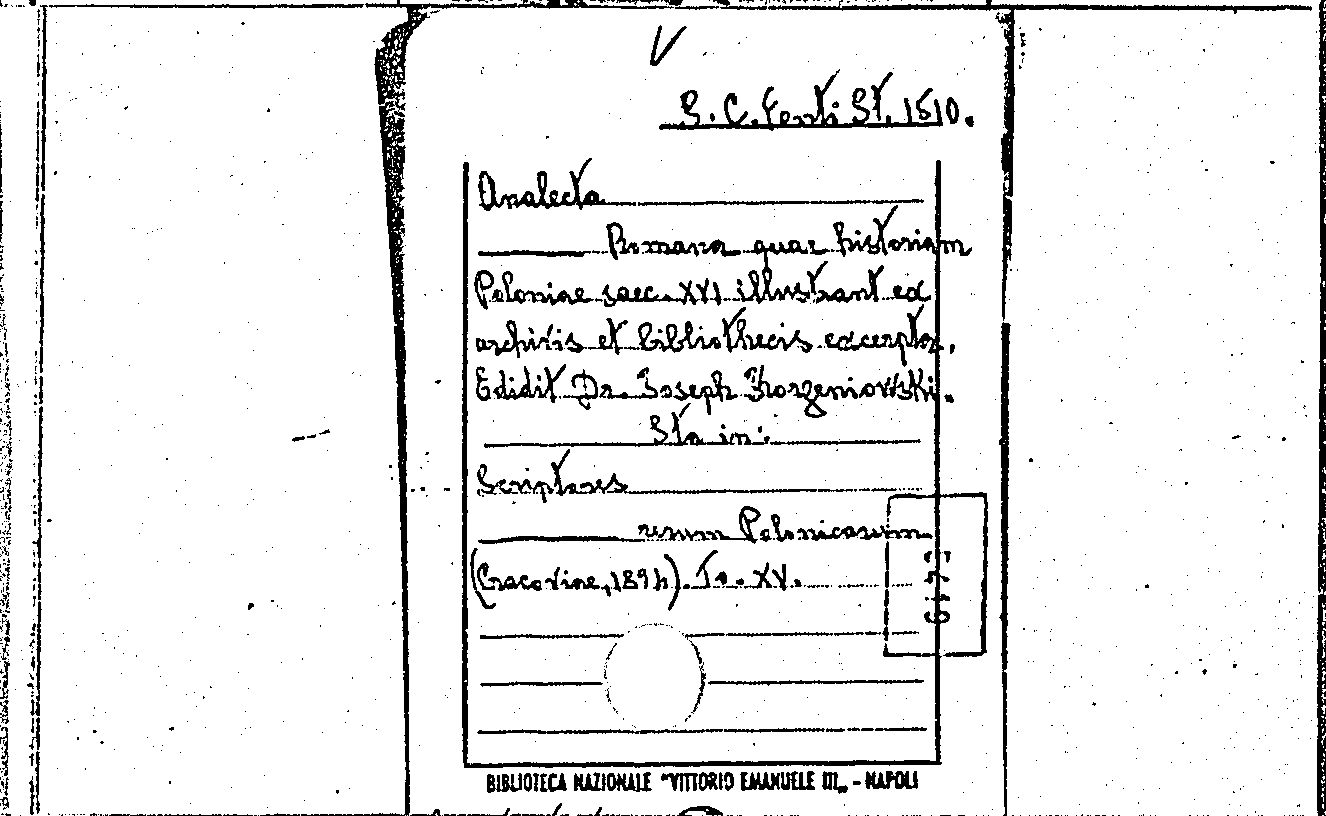 V
S. C. Fonti St. 1510.
Analecta
Romana quae historiam
Poloniae saec. XVI illustrant ex
archivis et bibliothecis excerpta.
Edidit Dr. Joseph Korzeniowski.
Sta in:
Scriptores
rerum Polonicarum
(Cracoviae, 1894). To. XV.
BIBLIOTECA NAZIONALE "VITTORIO EMANUELE III„ - NAPOLI